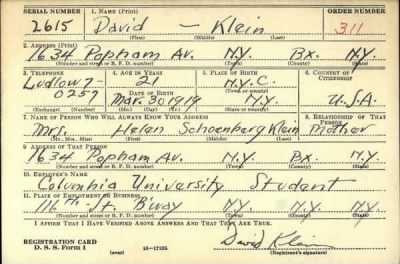 SERIAL NUMBER 1. NAME (Print) ORDER NUMBER
2615 David — Klein 311
(First) (Middle) (Last)
2. ADDRESS (Print)
1634 Popham Av. N.Y. Bx. N.Y.
(Number and street or R. F. D. number) (Town) (County) (State)
3. TELEPHONE 4. AGE IN YEARS 5. PLACE OF BIRTH 6. COUNTRY OF CITIZENSHIP
Ludlow 7- 21 N.Y.C.
0257 DATE OF BIRTH
Mar. 30 1919 N.Y. U.S.A.
(Exchange) (Number) (Mo.) (Day) (Yr.) (State or country)
7. NAME OF PERSON WHO WILL ALWAYS KNOW YOUR ADDRESS 8. RELATIONSHIP OF THAT PERSON
Mrs. Helen Schoenberg Klein Mother
(Mr., Mrs., Miss) (First) (Middle) (Last)
9. ADDRESS OF THAT PERSON
1634 Popham Av. N.Y. Bx. N.Y.
(Number and street or R. F. D. number) (Town) (County) (State)
10. EMPLOYER'S NAME
Columbia University Student
11. PLACE OF EMPLOYMENT OR BUSINESS
116th St. B'way N.Y. N.Y.
(Number and street or R. F. D. number) (Town) (County) (State)
I AFFIRM THAT I HAVE VERIFIED ABOVE ANSWERS AND THAT THEY ARE TRUE.
REGISTRATION CARD
D. S. S. Form 1 (over) 16—17105 David Klein
(Registrant's signature)